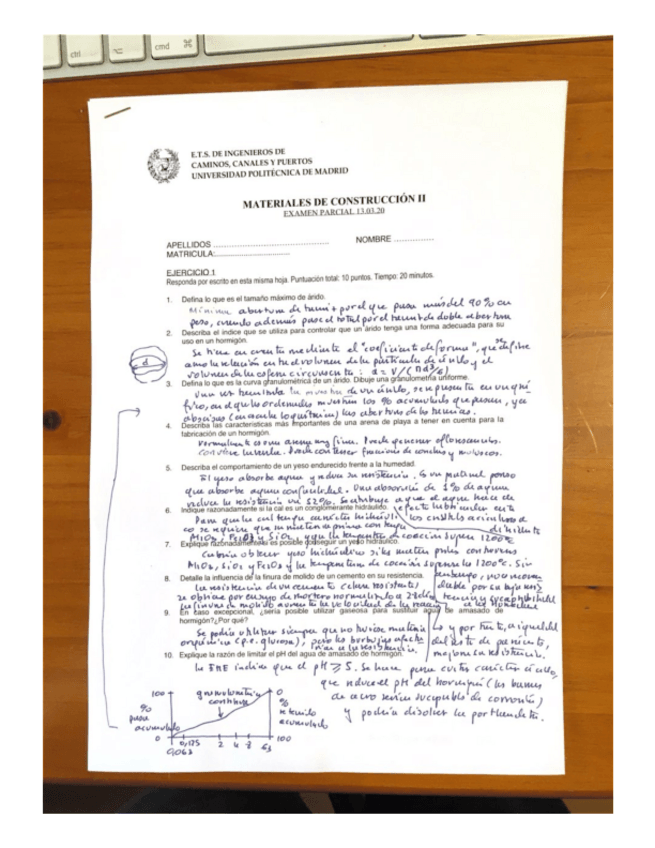 ctrl
⌥
cmd ⌘
E.T.S. DE INGENIEROS DE
CAMINOS, CANALES Y PUERTOS
UNIVERSIDAD POLITÉCNICA DE MADRID
MATERIALES DE CONSTRUCCIÓN II
EXAMEN PARCIAL 13.03.20
APELLIDOS ............................................ NOMBRE ...............
MATRICULA:............................
EJERCICIO 1
Responda por escrito en esta misma hoja. Puntuación total: 10 puntos. Tiempo: 20 minutos.
1. Defina lo que es el tamaño máximo de árido.
Mínima abertura de tamiz por el que pasa más del 90% en
peso, cuando además pasa el total por el tamiz de doble abertura
2. Describa el índice que se utiliza para controlar que un árido tenga una forma adecuada para su
uso en un hormigón.
Se tiene en cuenta mediante el "coeficiente de forma", que se define
como la relación entre el volumen de la partícula de árido y el
d
volumen de la esfera circunscrita: α = V/(πd³/6)
3. Defina lo que es la curva granulométrica de un árido. Dibuje una granulometría uniforme.
Una vez tamizada la muestra de un árido, se representa en un grá
fico, en el que las ordenadas muestran los % acumulados que pasan, y en
abscisas (en escala logarítmica) las aberturas de los tamices.
4. Describa las características más importantes de una arena de playa a tener en cuenta para la
fabricación de un hormigón.
Normalmente es una arena muy fina. Puede generar eflorescencias.
Conviene lavarla. Puede contener fracciones de conchas y moluscos.
5. Describa el comportamiento de un yeso endurecido frente a la humedad.
El yeso absorbe agua y reduce su resistencia. Es un material poroso
que absorbe agua con facilidad. Una absorción de 1% de agua
reduce la resistencia un 52%. Se atribuye a que el agua hace de
6. Indique razonadamente si la cal es un conglomerante hidráulico. efecto lubricador entre
Para que la cal tenga carácter hidráulico los cristales aciculares de
co se requiere que su materia prima contenga dihidrato
Al₂O₃, Fe₂O₃ y SiO₂, y que la temperatura de cocción supere 1200°C
7. Explique razonadamente si es posible conseguir un yeso hidráulico.
Cabría obtener yeso hidráulico si las materias primas contuvieran
Al₂O₃, SiO₂ y Fe₂O₃ y la temperatura de cocción superase los 1200°C. Sin
8. Detalle la influencia de la finura de molido de un cemento en su resistencia. embargo, no es recomen
La resistencia de un cemento (clase resistente) dable por su baja resis
se obtiene por ensayo de mortero normalizado a 28 días tencia y susceptibilidad
La finura de molido aumenta la velocidad de la reacción a la humedad
9. En caso excepcional, ¿sería posible utilizar gaseosa para sustituir agua de amasado de
hormigón?¿Por qué?
Se podría utilizar siempre que no tuviese materia
orgánica (p.e. glucosa), pero las burbujas afecta
rían a la resistencia.
y por tanto, a igualdad
del resto de parámetros,
mejora en resistencia.
10. Explique la razón de limitar el pH del agua de amasado de hormigón.
La EHE indica que el pH ≥ 5. Se hace para evitar carácter ácido,
que reduce el pH del hormigón (las barras
de acero serían susceptibles de corrosión)
y podría disolver la portlandita.
100
%
pasa
acumulado
0
granulometría
continua
0
%
retenido
acumulado
100
0,063 0,125 2 4 8 63